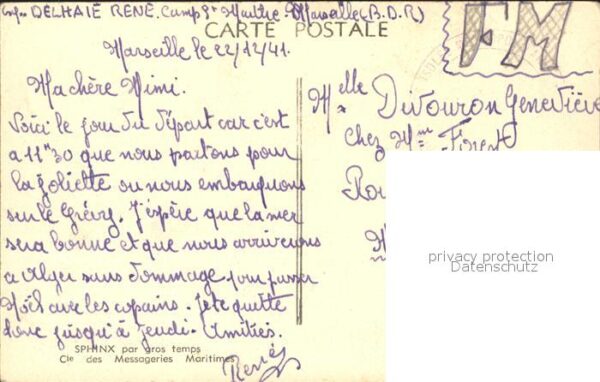 DELHAIE RENÉ. Camp Marseille (B.D.R)
CARTE POSTALE
FM
Marseille le 22/12/41.
Ma chère Mimi.
Voici le jour du départ car c'est
a 11H30 que nous partons pour
la Joliette ou nous embarquons
sur le Grévy. J'espère que la mer
sera bonne et que nous arriverons
a Alger sans dommage pour passer
Noël avec les copains. Je te quitte
donc jusqu'à Jeudi. Amitiés.
René
Melle Divouron Geneviève
Chez Mme Forest
SPHINX par gros temps
Cie des Messageries Maritimes
privacy protection
Datenschutz